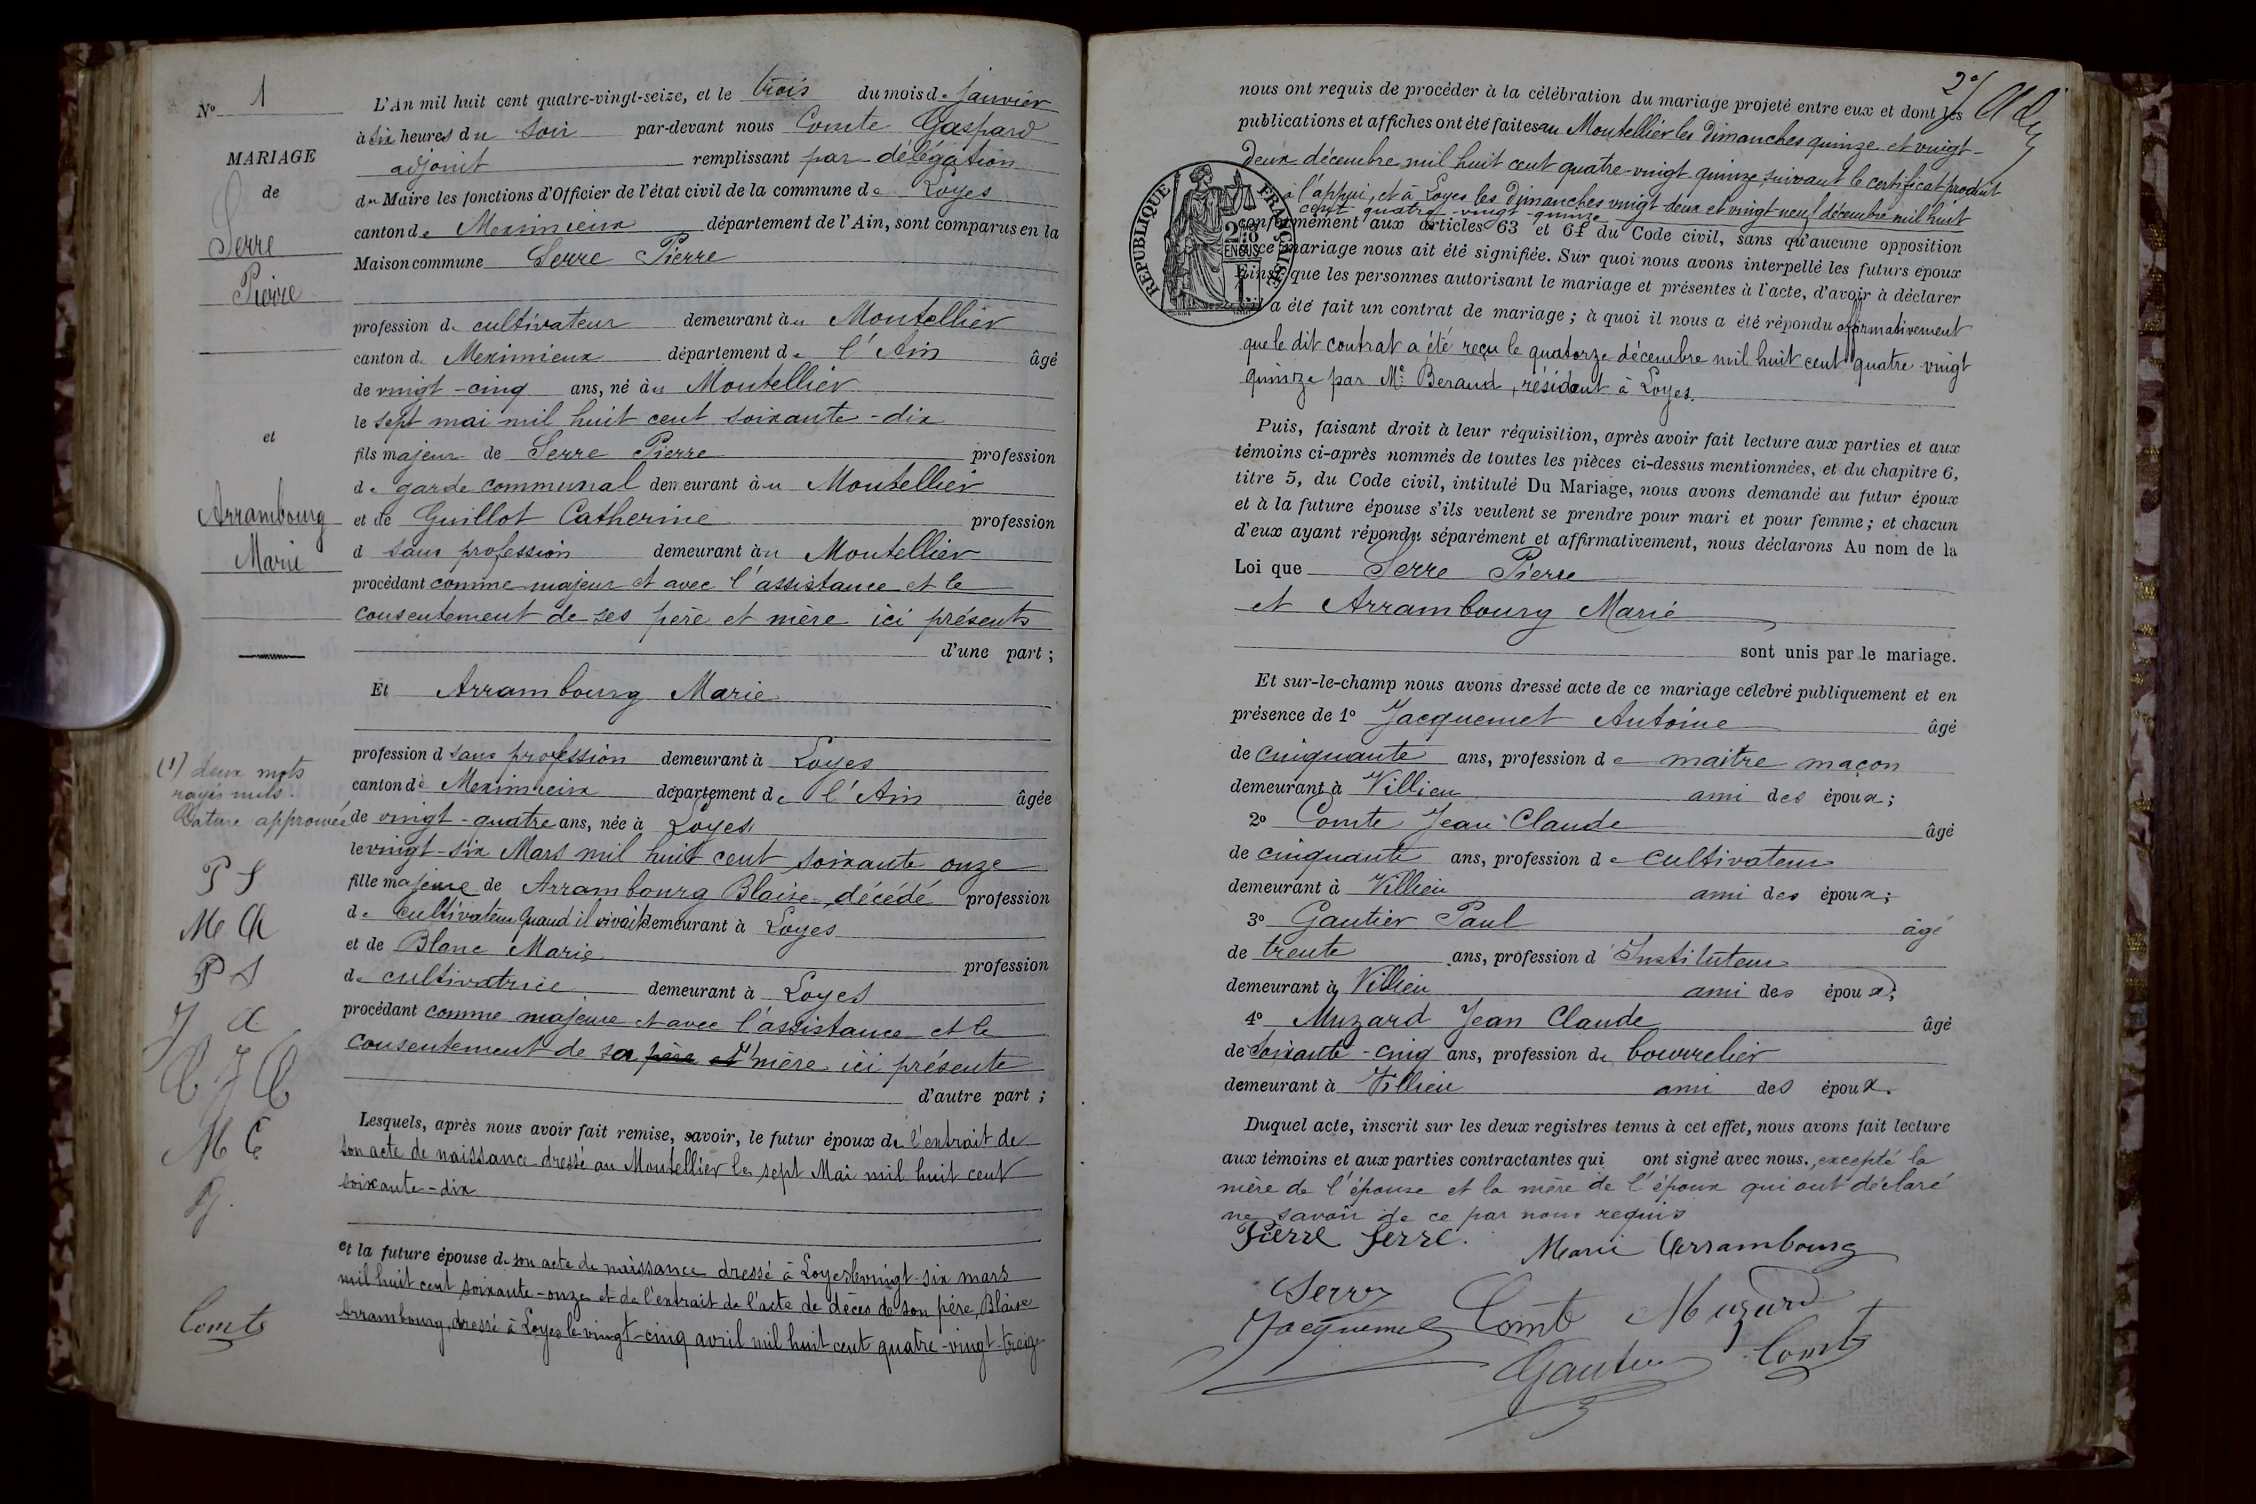 N° 1
MARIAGE
de
Serre
Pierre
et
Arrambourg
Marie
(1) deux mots
rayés nuls.
Rature approuvée
P S
M A
P S
J A
C J C
M C
G.
Comte
L'An mil huit cent quatre-vingt-seize, et le trois du mois de janvier
à six heures du soir par-devant nous Comte Gaspard
adjoint remplissant par délégation
du Maire les fonctions d'Officier de l'état civil de la commune de Loyes
canton de Meximieux département de l'Ain, sont comparus en la
Maison commune Serre Pierre
profession de cultivateur demeurant au Montellier
canton de Meximieux département de l'Ain âgé
de vingt-cinq ans, né au Montellier
le sept mai mil huit cent soixante-dix
fils majeur de Serre Pierre profession
de garde communal demeurant au Montellier
et de Guillot Catherine profession
d sans profession demeurant au Montellier
procédant comme majeur et avec l'assistance et le
consentement de ses père et mère ici présents
d'une part ;
Et Arrambourg Marie
profession d sans profession demeurant à Loyes
canton de Meximieux département de l'Ain âgée
de vingt-quatre ans, née à Loyes
le vingt-six Mars mil huit cent soixante onze
fille majeure de Arrambourg Blaise, décédé profession
de cultivateur quand il vivait demeurant à Loyes
et de Blanc Marie profession
de cultivatrice demeurant à Loyes
procédant comme majeure et avec l'assistance et le
consentement de sa père et (1) mère ici présente
d'autre part ;
Lesquels, après nous avoir fait remise, savoir, le futur époux de l'extrait de
son acte de naissance dressé au Montellier le sept Mai mil huit cent
soixante-dix
et la future épouse de son acte de naissance dressé à Loyes le vingt-six mars
mil huit cent soixante-onze et de l'extrait de l'acte de décès de son père, Blaise
Arrambourg, dressé à Loyes le vingt-cinq avril mil huit cent quatre-vingt-treize
2°/
nous ont requis de procéder à la célébration du mariage projeté entre eux et dont les
publications et affiches ont été faites au Montellier les Dimanches quinze et vingt-
deux décembre mil huit cent quatre-vingt-quinze, suivant le certificat produit
à l'appui, et à Loyes les Dimanches vingt-deux et vingt neuf décembre mil huit
cent quatre-vingt-quinze
conformément aux articles 63 et 64 du Code civil, sans qu'aucune opposition
à ce mariage nous ait été signifiée. Sur quoi nous avons interpellé les futurs époux
ainsi que les personnes autorisant le mariage et présentes à l'acte, d'avoir à déclarer
s'il a été fait un contrat de mariage ; à quoi il nous a été répondu affirmativement
que le dit contrat a été reçu le quatorze décembre mil huit cent quatre-vingt
quinze par Me Beraud, résidant à Loyes.
RÉPUBLIQUE FRANÇAISE
2/10
EN SUS
Puis, faisant droit à leur réquisition, après avoir fait lecture aux parties et aux
témoins ci-après nommés de toutes les pièces ci-dessus mentionnées, et du chapitre 6,
titre 5, du Code civil, intitulé Du Mariage, nous avons demandé au futur époux
et à la future épouse s'ils veulent se prendre pour mari et pour femme ; et chacun
d'eux ayant répondu séparément et affirmativement, nous déclarons Au nom de la
Loi que Serre Pierre
et Arrambourg Marie
sont unis par le mariage.
Et sur-le-champ nous avons dressé acte de ce mariage célébré publiquement et en
présence de 1° Jacquemet Antoine âgé
de cinquante ans, profession de maître maçon
demeurant à Villieu ami des époux ;
2° Comte Jean-Claude âgé
de cinquante ans, profession de cultivateur
demeurant à Villieu ami des époux ;
3° Gautier Paul âgé
de trente ans, profession d'Instituteur
demeurant à Villieu ami des époux ;
4° Muzard Jean Claude âgé
de soixante-cinq ans, profession de bourrelier
demeurant à Villieu ami des époux.
Duquel acte, inscrit sur les deux registres tenus à cet effet, nous avons fait lecture
aux témoins et aux parties contractantes qui ont signé avec nous., excepté la
mère de l'épouse et la mère de l'époux qui ont déclaré
ne savoir de ce par nous requis
Pierre Serre. Marie Arrambourg
Serre
Jacquemet Comte Muzard
Gautier Comte